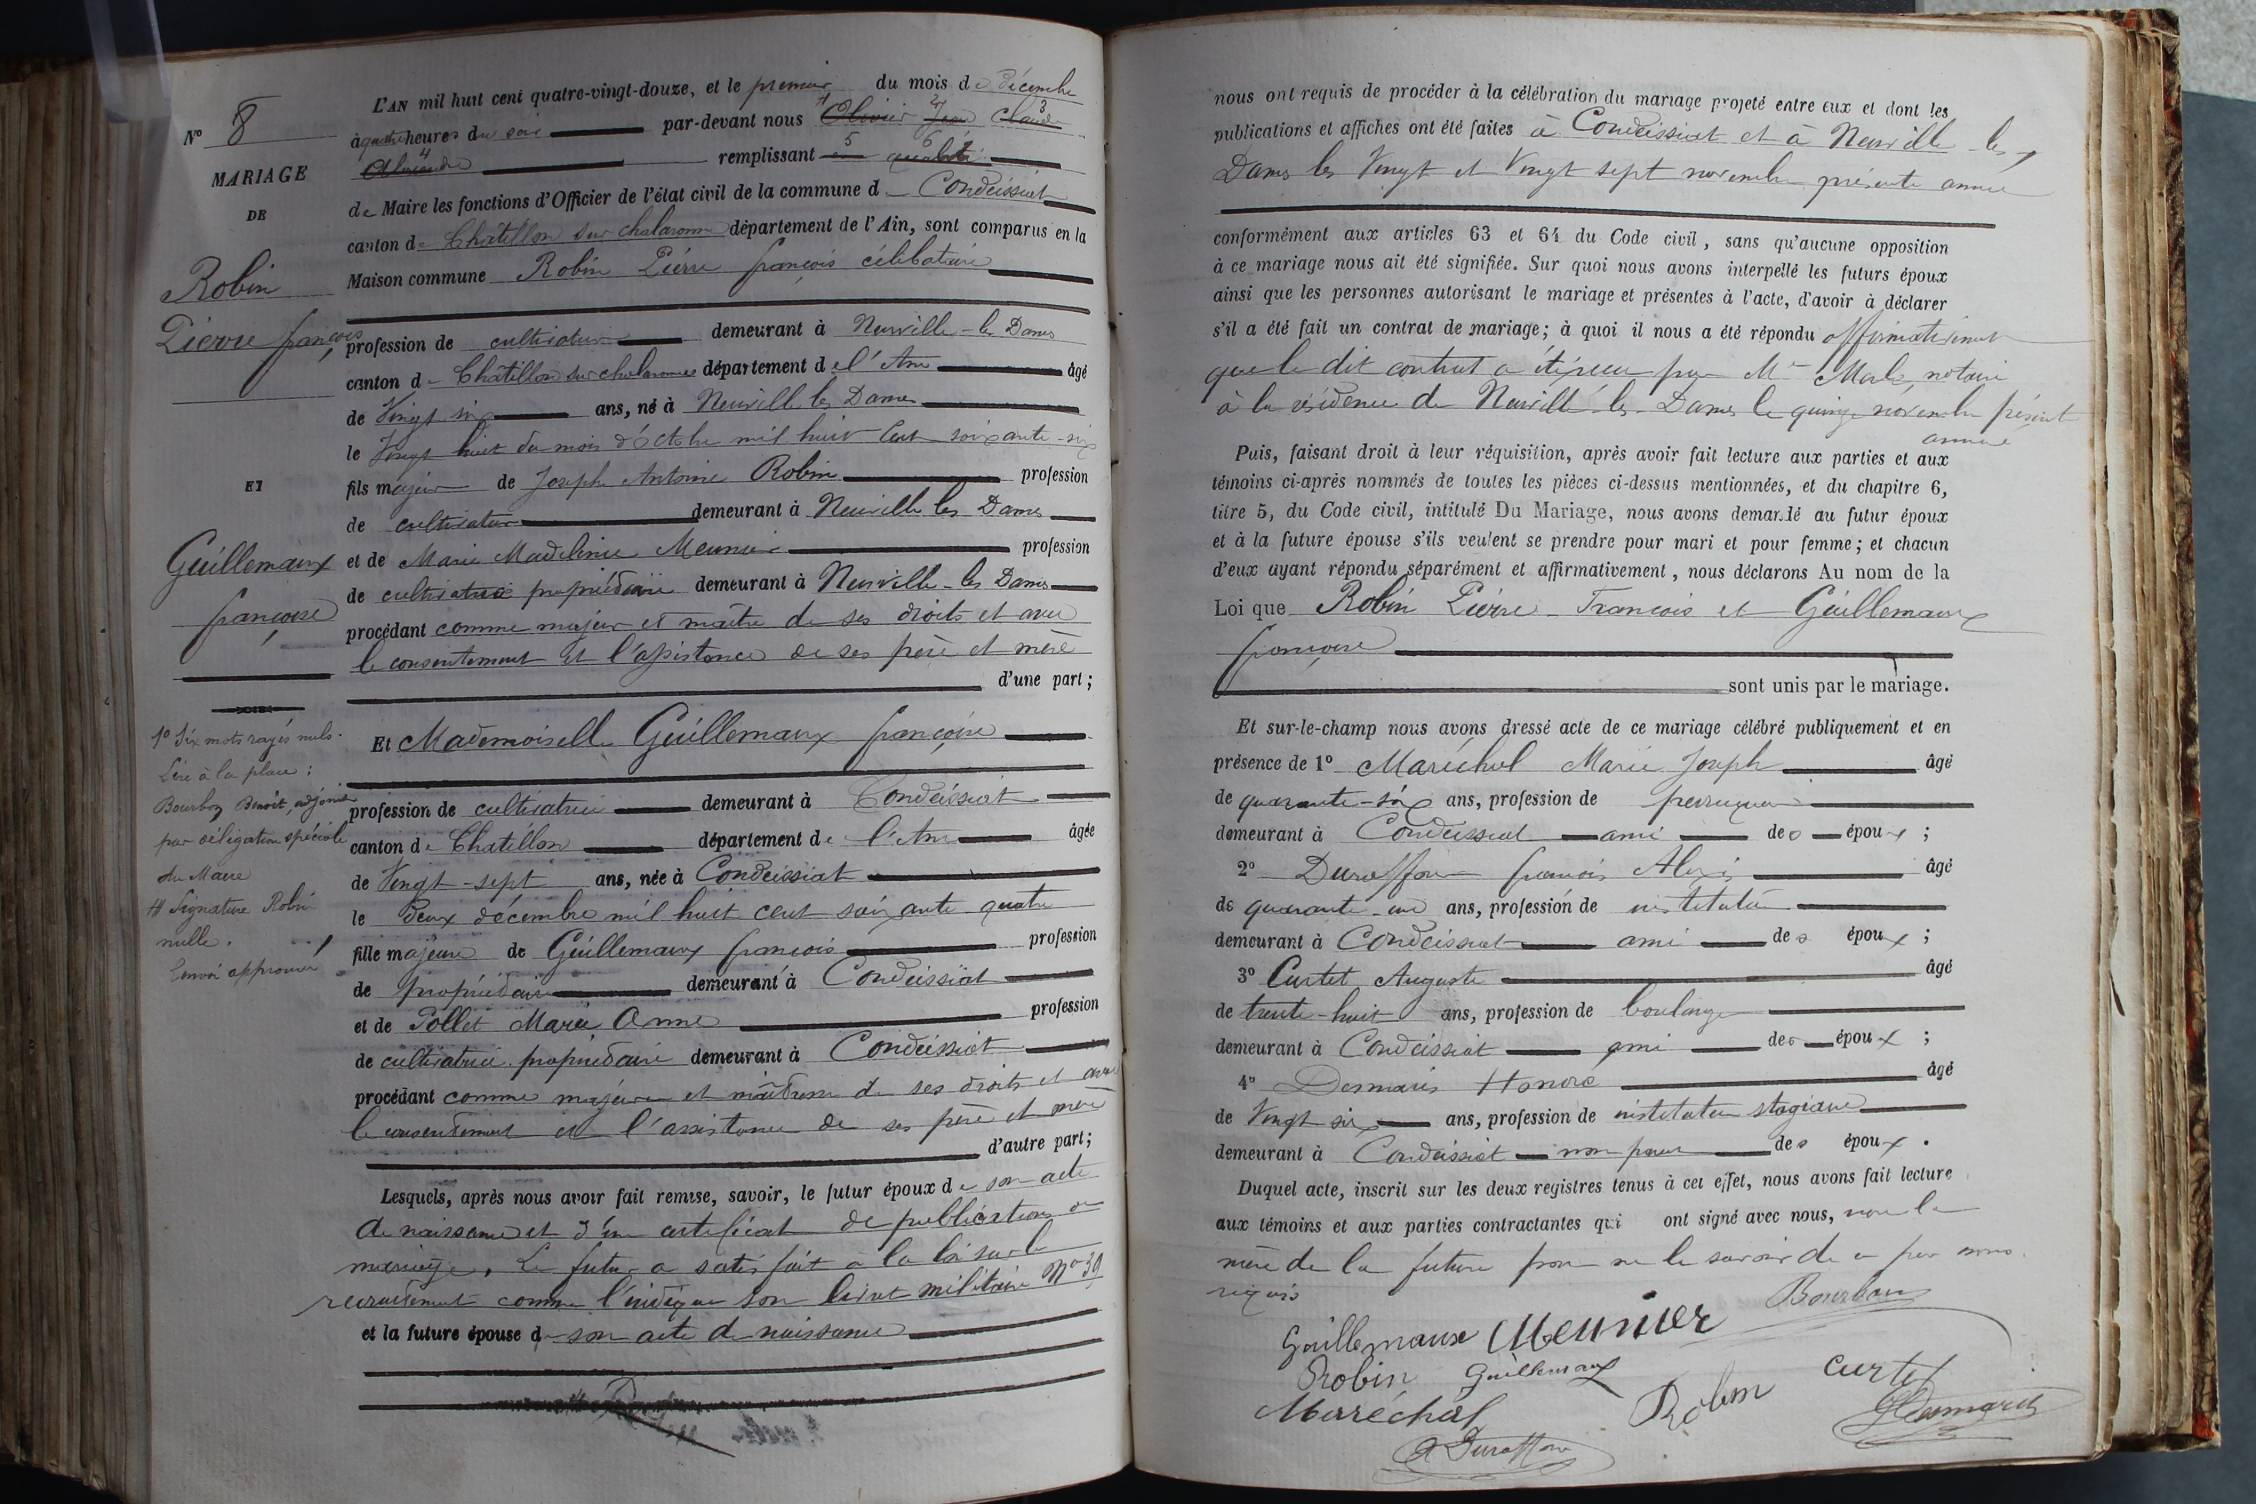 N° 8
MARIAGE
DE
Robin
Pierre françois
ET
Guillemaux
françoise
1° Six mots rayés nuls.
Lire à la place :
Bourbon Benoit, adjoint
par délégation spéciale
du Maire
# Signature Robin
nulle.
L'AN mil huit cent quatre-vingt-douze, et le premier du mois de décembre
à quatre heures du soir par-devant nous Olivier Jean Claude
Alexandre remplissant en qualité
de Maire les fonctions d'Officier de l'état civil de la commune d Condeissiat
canton de Châtillon sur chalaronne département de l'Ain, sont comparus en la
Maison commune Robin Pierre françois célibataire
profession de cultivateur demeurant à Neuville-les Dames
canton de Châtillon sur chalaronne département de l'Ain âgé
de Vingt six ans, né à Neuville les Dames
le Vingt huit du mois d'Octobre mil huit cent soixante-six
fils majeur de Joseph Antoine Robin profession
de cultivateur demeurant à Neuville les Dames
et de Marie Madeleine Meunier profession
de cultivatrice propriétaire demeurant à Neuville-les Dames
procédant comme majeur et maître de ses droits et avec
le consentement et l'assistance de ses père et mère
d'une part;
Et Mademoiselle Guillemaux françoise
profession de cultivatrice demeurant à Condeissiat
canton de Chatillon département de l'Ain âgée
de Vingt-sept ans, née à Condeissiat
le Deux décembre mil huit cent soixante quatre
fille majeure de Guillemaux françois profession
de propriétaire demeurant à Condeissiat
et de Pollet Marie Anne profession
de cultivatrice propriétaire demeurant à Condeissiat
procédant comme majeure et maîtresse de ses droits et avec
le consentement et l'assistance de ses père et mère
d'autre part;
Lesquels, après nous avoir fait remise, savoir, le futur époux de son acte
de naissance et d'un certificat de publications de
mariage, Le futur a satisfait à la loi sur le
recrutement comme l'indique son livret militaire N° 39
et la future épouse de son acte de naissance
nous ont requis de procéder à la célébration du mariage projeté entre eux et dont les
publications et affiches ont été faites à Condeissiat et à Neuville les
Dames les Vingt et Vingt sept novembre présente année
conformément aux articles 63 et 64 du Code civil, sans qu'aucune opposition
à ce mariage nous ait été signifiée. Sur quoi nous avons interpellé les futurs époux
ainsi que les personnes autorisant le mariage et présentes à l'acte, d'avoir à déclarer
s'il a été fait un contrat de mariage; à quoi il nous a été répondu affirmativement
que le dit contrat a été reçu par Me notaire
à la résidence de Neuville-les-Dames le quinze novembre présent
année
Puis, faisant droit à leur réquisition, après avoir fait lecture aux parties et aux
témoins ci-après nommés de toutes les pièces ci-dessus mentionnées, et du chapitre 6,
titre 5, du Code civil, intitulé Du Mariage, nous avons demandé au futur époux
et à la future épouse s'ils veulent se prendre pour mari et pour femme; et chacun
d'eux ayant répondu séparément et affirmativement, nous déclarons Au nom de la
Loi que Robin Pierre-François et Guillemaux
françoise
sont unis par le mariage.
Et sur-le-champ nous avons dressé acte de ce mariage célébré publiquement et en
présence de 1° Maréchal Marie Joseph âgé
de quarante-six ans, profession de perruquier
demeurant à Condeissiat ami des époux ;
2° Duraffour françois Alexis âgé
de quarante-un ans, profession de instituteur
demeurant à Condeissiat ami des époux ;
3° Curtet Auguste âgé
de trente-huit ans, profession de boulanger
demeurant à Condeissiat ami des époux ;
4° Desmaris Honoré âgé
de Vingt six ans, profession de instituteur stagiaire
demeurant à Condeissiat non parent des époux.
Duquel acte, inscrit sur les deux registres tenus à cet effet, nous avons fait lecture
aux témoins et aux parties contractantes qui ont signé avec nous, non la
mère de la future pour ne le savoir de ce par nous
requis
Bourbon
Guillemaux Meunier
Robin Guillemaux
Curtet
Maréchal Robin
Desmaris
A Duraffour